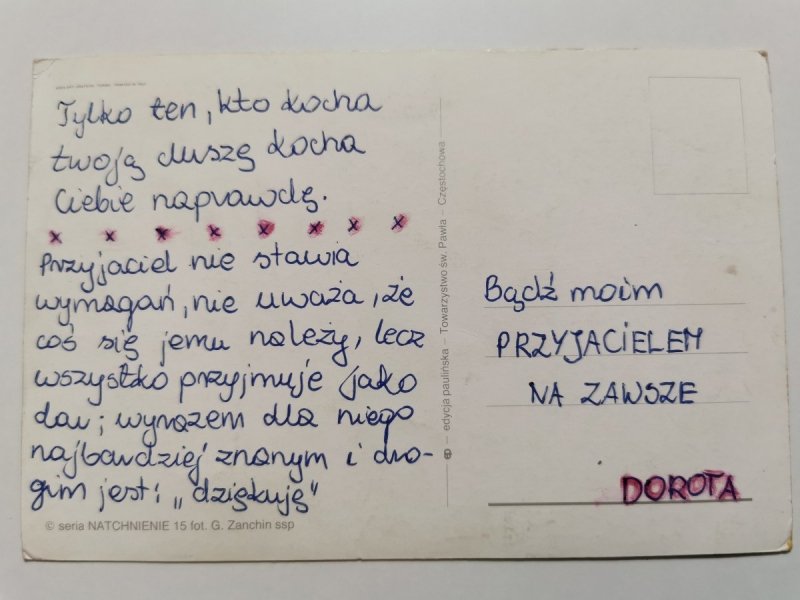 Tylko ten, kto kocha
twoją duszę kocha
Ciebie naprawdę.
x x x x x x x x
Przyjaciel nie stawia
wymagań, nie uważa, że
coś się jemu należy, lecz
wszystko przyjmuje jako
dar; wyrazem dla niego
najbardziej znanym i dro-
gim jest: „dziękuję"
© seria NATCHNIENIE 15 fot. G. Zanchin ssp
– edycja paulińska – Towarzystwo św. Pawła – Częstochowa
Bądź moim
PRZYJACIELEM
NA ZAWSZE
DOROTA